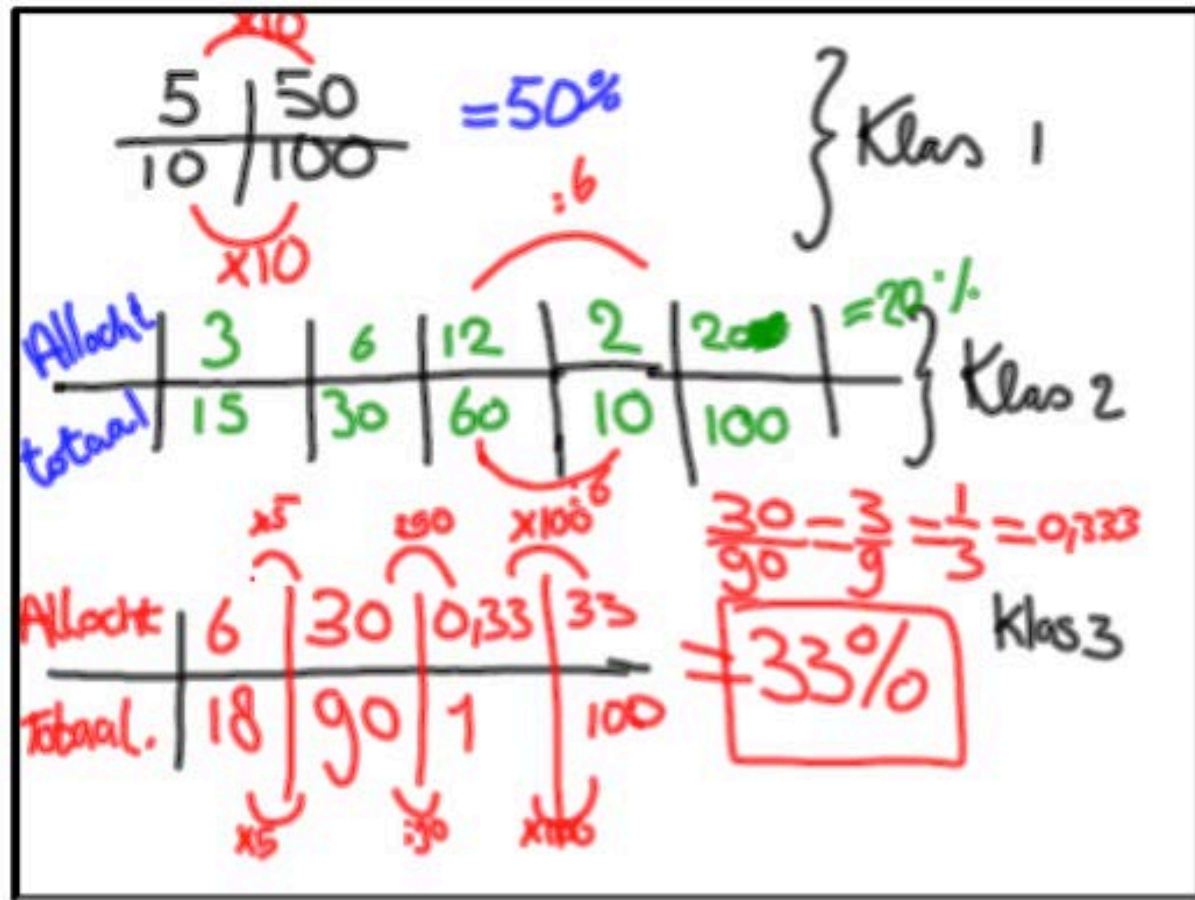 x10
5 | 50 = 50%
10 | 100
x10
} Klas 1
:6
Allocht. | 3 | 6 | 12 | 2 | 20 | = 20%
totaal | 15 | 30 | 60 | 10 | 100 |
} Klas 2
:6
x5 x100
30/90 = 3/9 = 1/3 = 0,333
Allocht | 6 | 30 | 0,33 | 33
Totaal. | 18 | 90 | 1 | 100
= 33%
Klas 3
x5 :90 x100